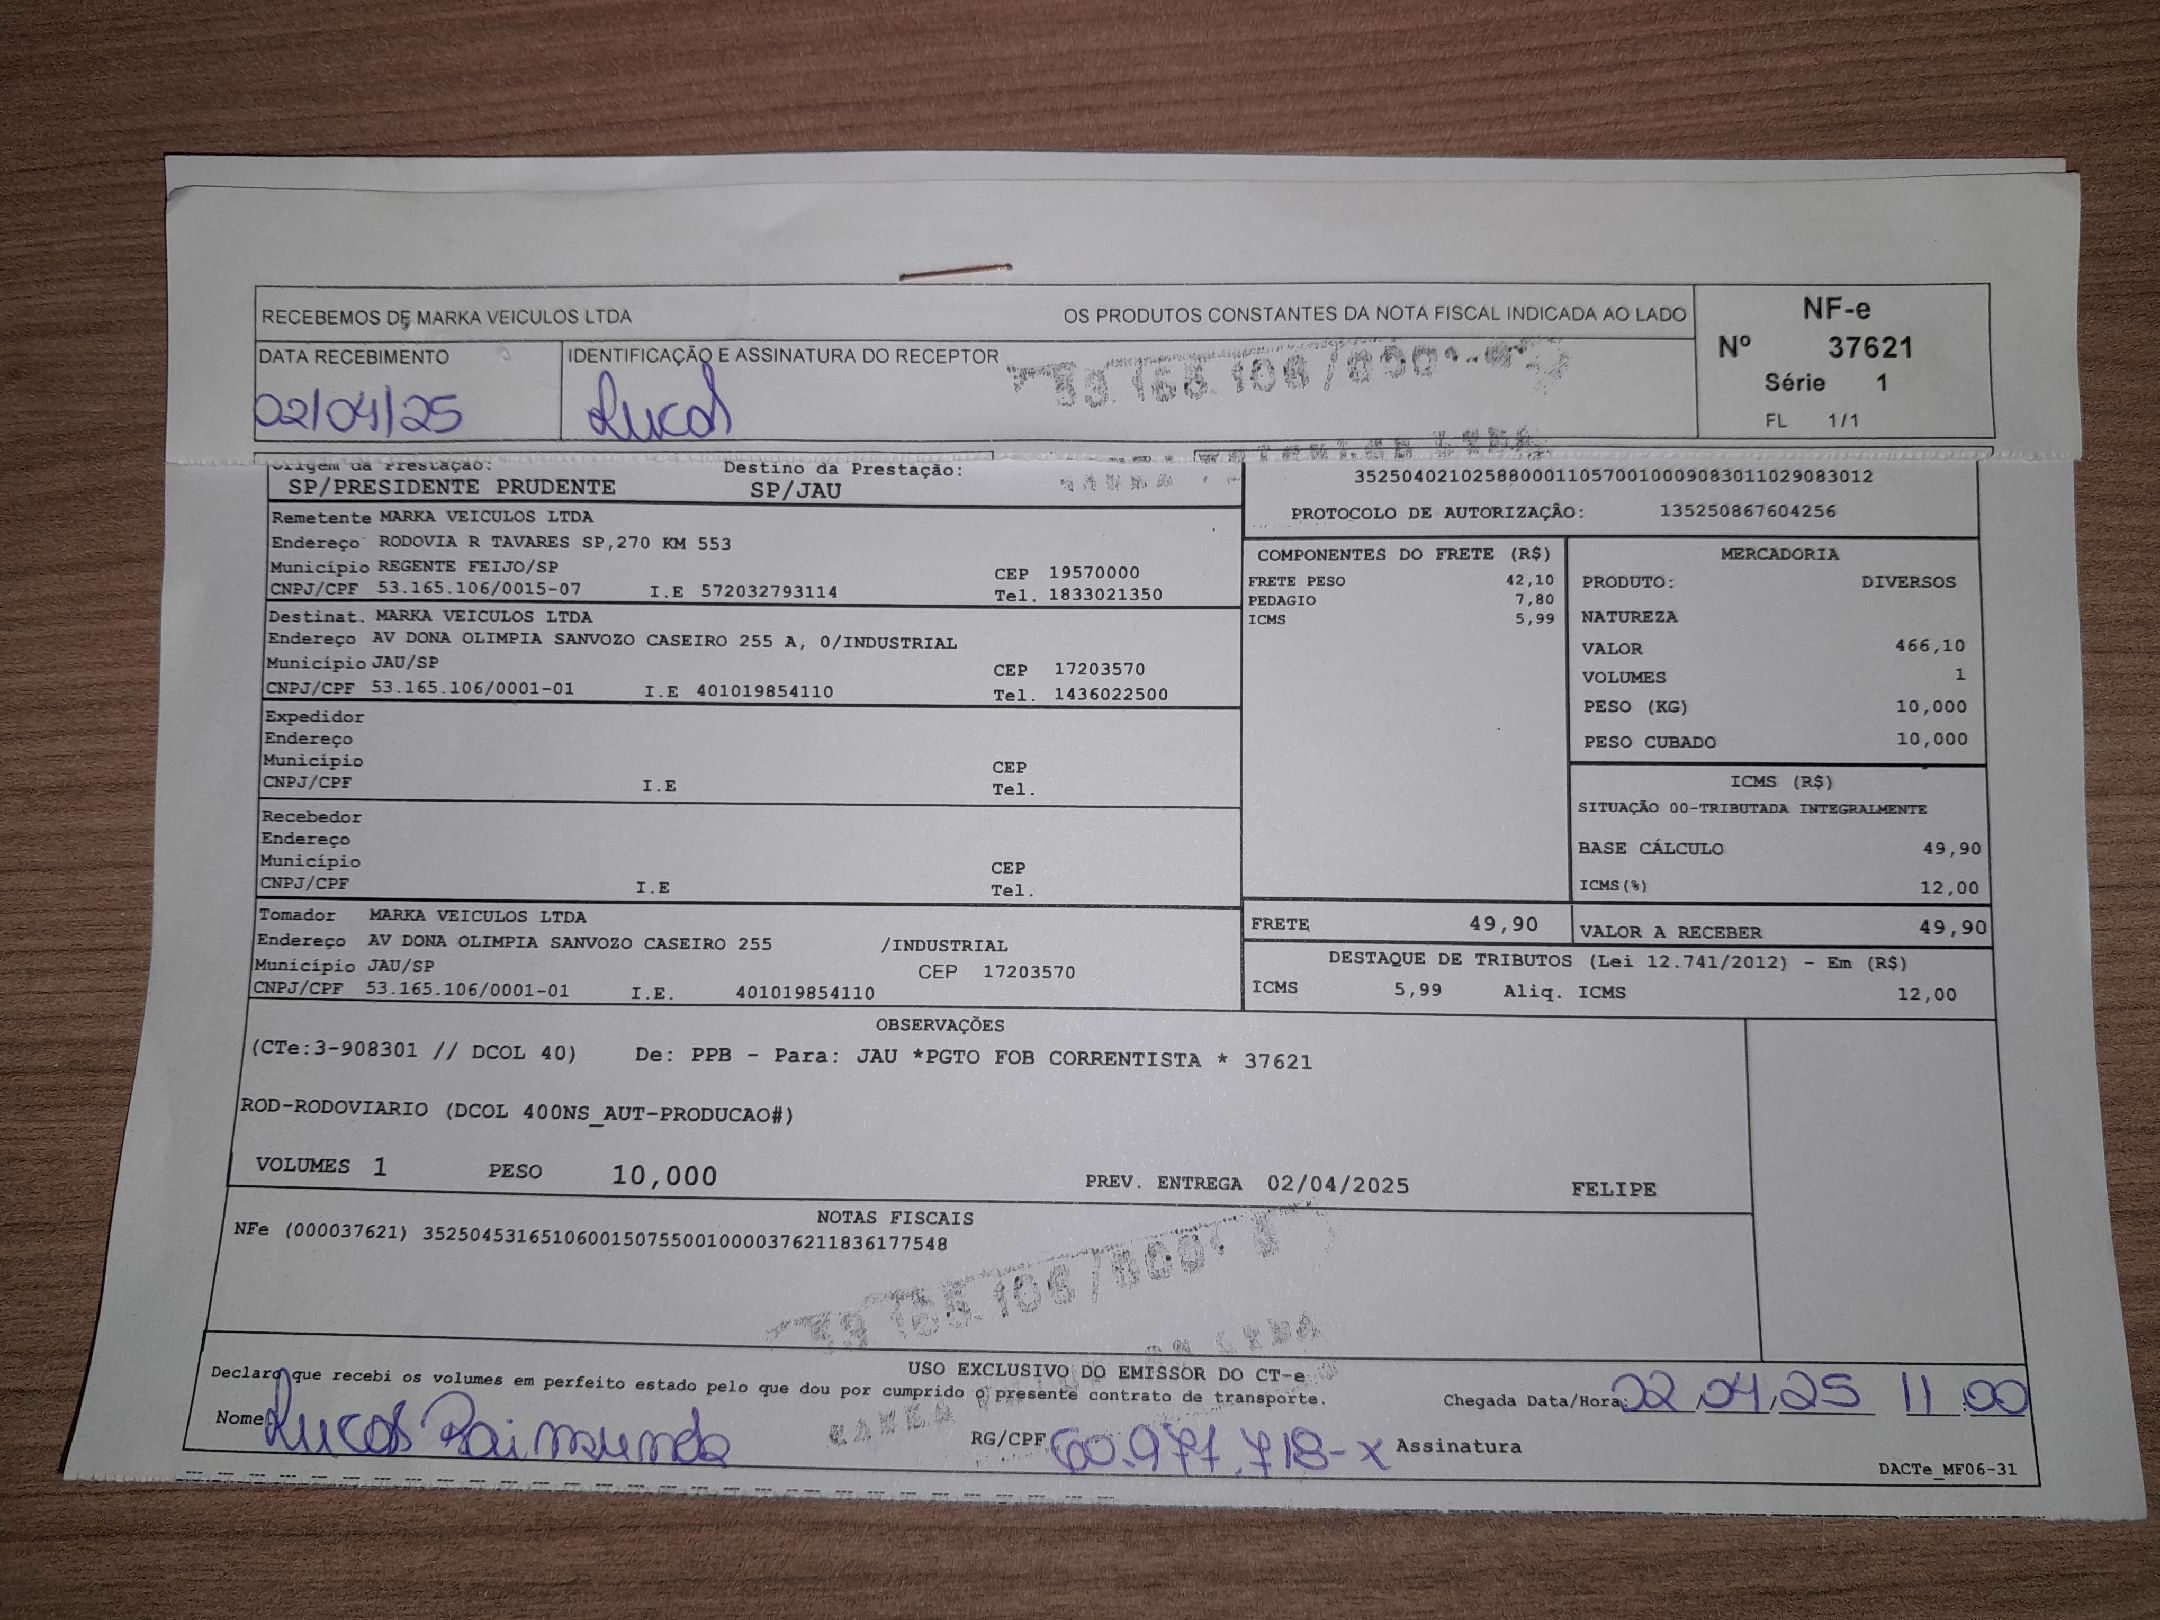 RECEBEMOS DE MARKA VEICULOS LTDA OS PRODUTOS CONSTANTES DA NOTA FISCAL INDICADA AO LADO
NF-e
Nº 37621
Série 1
FL 1/1
DATA RECEBIMENTO
02/04/25
IDENTIFICAÇÃO E ASSINATURA DO RECEPTOR
Lucas
Origem da Prestação: Destino da Prestação:
SP/PRESIDENTE PRUDENTE SP/JAU
35250402102588000110570010009083011029083012
PROTOCOLO DE AUTORIZAÇÃO: 135250867604256
Remetente MARKA VEICULOS LTDA
Endereço RODOVIA R TAVARES SP,270 KM 553
Município REGENTE FEIJO/SP CEP 19570000
CNPJ/CPF 53.165.106/0015-07 I.E 572032793114 Tel. 1833021350
Destinat. MARKA VEICULOS LTDA
Endereço AV DONA OLIMPIA SANVOZO CASEIRO 255 A, 0/INDUSTRIAL
Município JAU/SP CEP 17203570
CNPJ/CPF 53.165.106/0001-01 I.E 401019854110 Tel. 1436022500
Expedidor
Endereço
Município CEP
CNPJ/CPF I.E Tel.
Recebedor
Endereço
Município CEP
CNPJ/CPF I.E Tel.
Tomador MARKA VEICULOS LTDA
Endereço AV DONA OLIMPIA SANVOZO CASEIRO 255 /INDUSTRIAL
Município JAU/SP CEP 17203570
CNPJ/CPF 53.165.106/0001-01 I.E. 401019854110
COMPONENTES DO FRETE (R$)
FRETE PESO 42,10
PEDAGIO 7,80
ICMS 5,99
MERCADORIA
PRODUTO: DIVERSOS
NATUREZA
VALOR 466,10
VOLUMES 1
PESO (KG) 10,000
PESO CUBADO 10,000
ICMS (R$)
SITUAÇÃO 00-TRIBUTADA INTEGRALMENTE
BASE CÁLCULO 49,90
ICMS(%) 12,00
FRETE 49,90 VALOR A RECEBER 49,90
DESTAQUE DE TRIBUTOS (Lei 12.741/2012) - Em (R$)
ICMS 5,99 Aliq. ICMS 12,00
OBSERVAÇÕES
(CTe:3-908301 // DCOL 40) De: PPB - Para: JAU *PGTO FOB CORRENTISTA * 37621
ROD-RODOVIARIO (DCOL 400NS_AUT-PRODUCAO#)
VOLUMES 1 PESO 10,000 PREV. ENTREGA 02/04/2025 FELIPE
NOTAS FISCAIS
NFe (000037621) 35250453165106001507550010000376211836177548
USO EXCLUSIVO DO EMISSOR DO CT-e
Declaro que recebi os volumes em perfeito estado pelo que dou por cumprido o presente contrato de transporte.
Chegada Data/Hora: 02 04 25 11 00
Nome: Lucas Raimundo RG/CPF 60.977.718-X Assinatura
DACTe_MF06-31